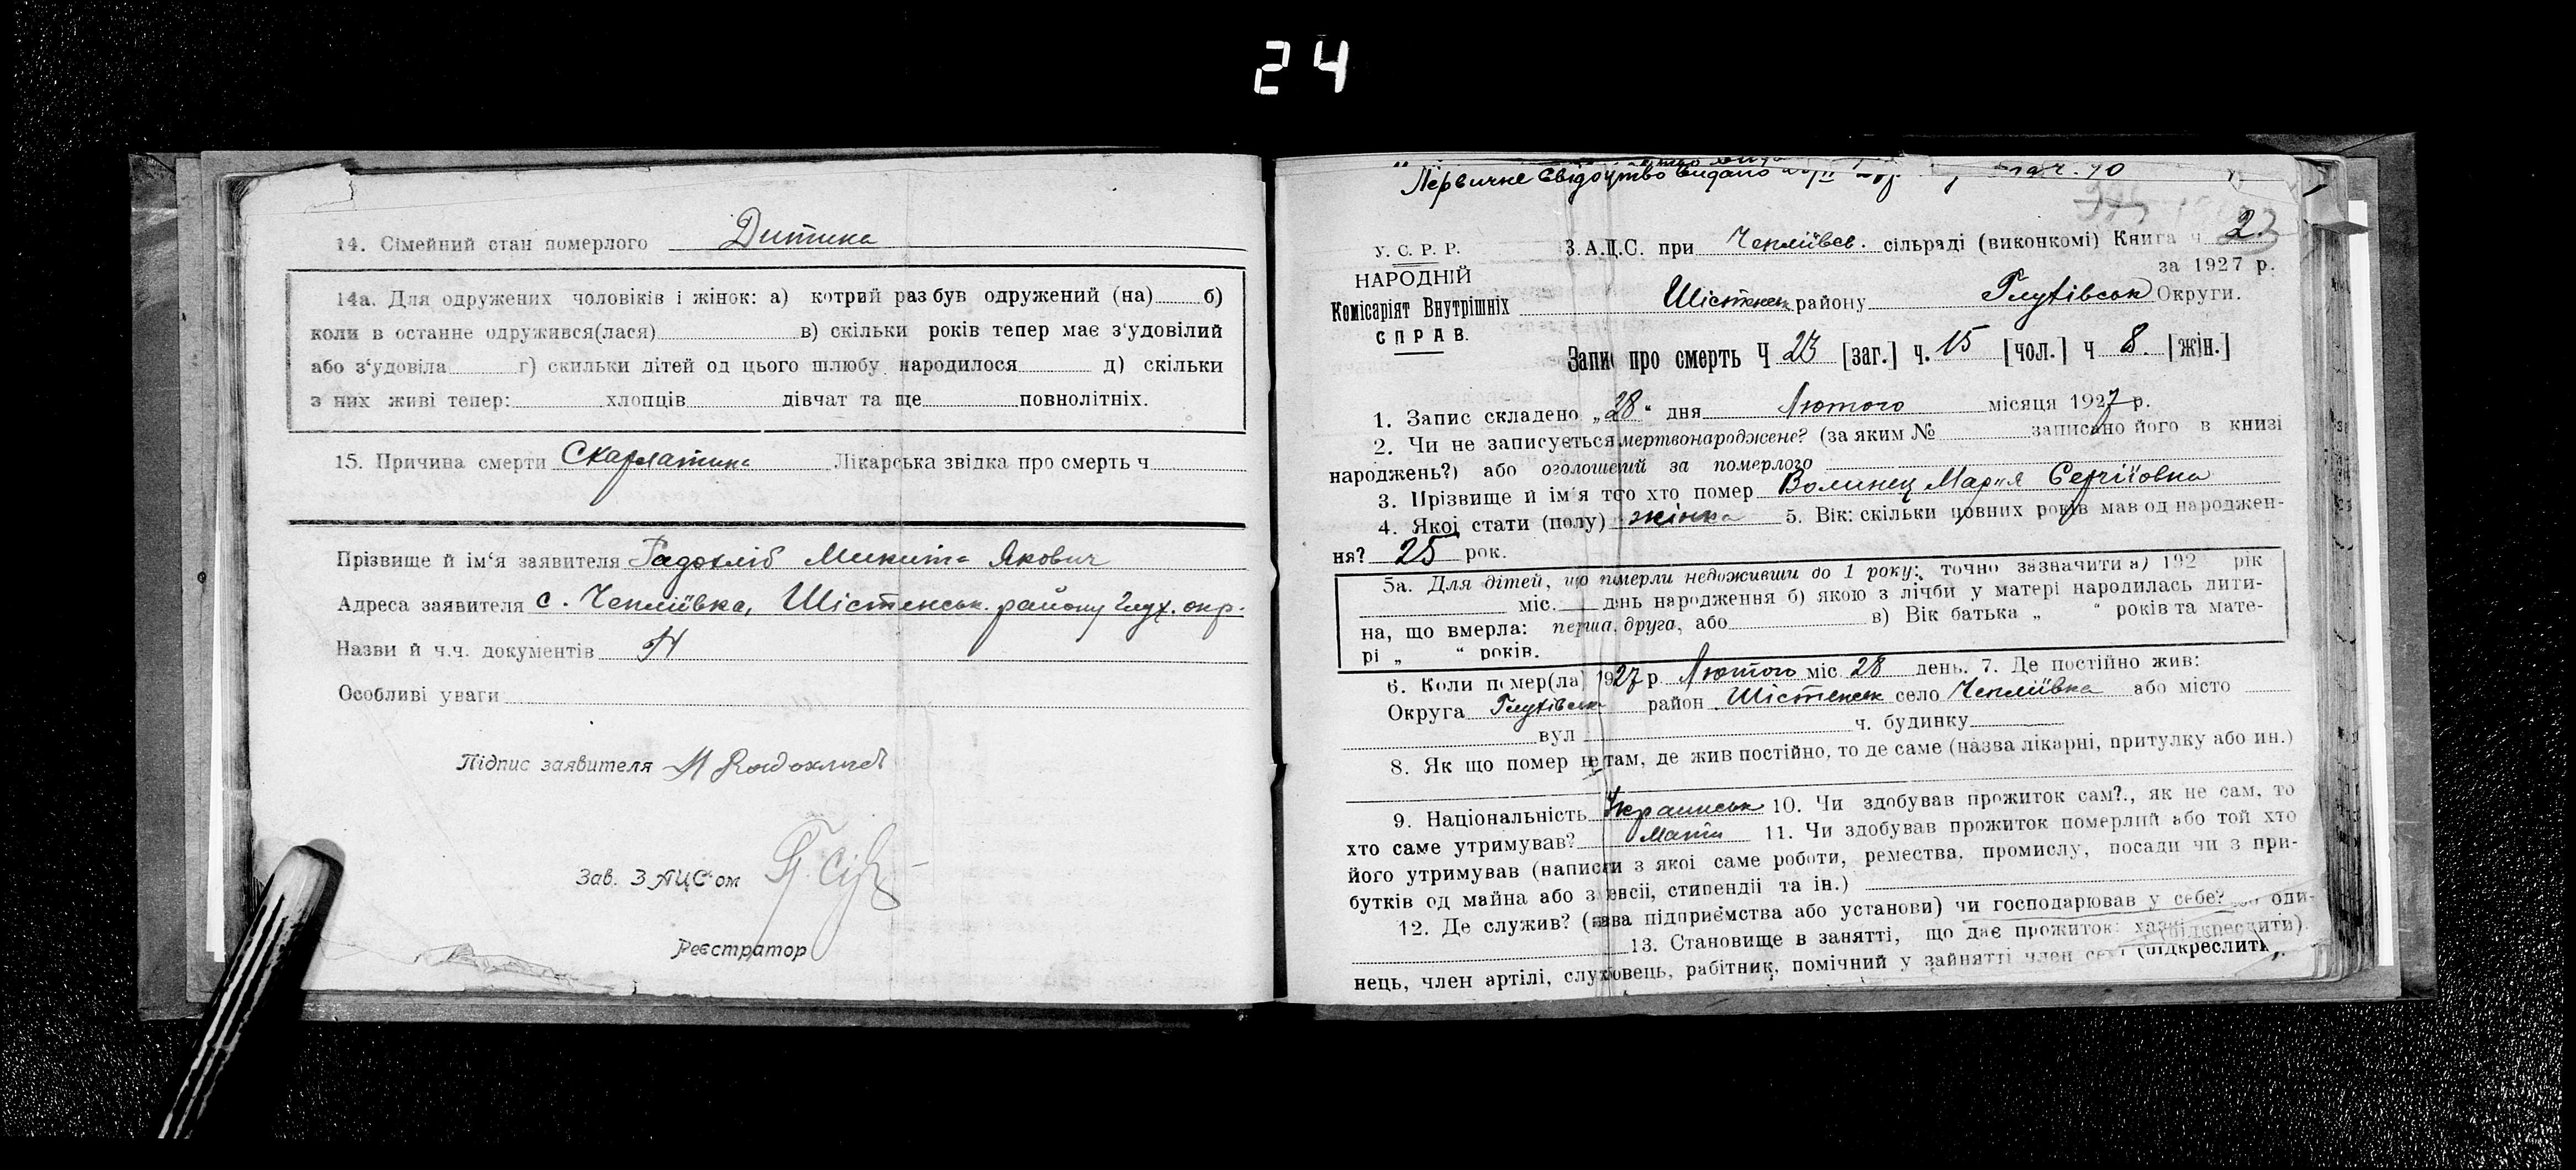 24
14. Сімейний стан померлого Дитина
14а. Для одружених чоловіків і жінок: а) котрий раз був одружений (на) б)
коли в останне одружився(лася) в) скільки років тепер має з'удовілий
або з'удовіла г) скильки дітей од цього шлюбу народилося д) скільки
з них живі тепер: хлопців дівчат та ще повнолітніх.
15. Причина смерти Скарлатина Лікарська звідка про смерть ч
Прізвище й ім'я заявителя Радохліб Микита Якович
Адреса заявителя с. Чепліївка, Шістенськ. району Глух. окр.
Назви й ч.ч. документів
Особливі уваги
Підпис заявителя М Радохліб
Зав. ЗАЦС'ом
Реєстратор
Первичне свідоцтво видано
У. С. Р. Р.
НАРОДНІЙ
Комісаріят Внутрішніх
СПРАВ.
З.А.Ц.С. при Чепліївск. сільраді (виконкомі) Книга ч 2
за 1927 р.
Шістенськ району Глухівськ Округи.
Запис про смерть Ч 23 [заг.] ч. 15 [чол.] ч 8. [жін.]
1. Запис складено „28" дня Лютого місяця 1927 р.
2. Чи не записується мертвонароджене? (за яким № записано його в книзі
народжень?) або оголошений за померлого
3. Прізвище й ім'я того хто помер Волинец Мария Сергіївна
4. Якої стати (полу) жінка 5. Вік: скільки повних років мав од народжен-
ня? 25 рок.
5а. Для дітей, що памерли недоживши до 1 року: точно зазначити а) 192 рік
міс. день народження б) якою з лічби у матері народилась дити-
на, що вмерла: перша, друга, або в) Вік батька „ “ років та мате-
рі „ “ років.
6. Коли помер(ла) 1927 р. Лютого міс 28 день. 7. Де постійно жив:
Округа Глухівськ район Шістенськ село Чепліївка або місто
вул ч. будинку
8. Як що помер не там, де жив постійно, то де саме (назва лікарні, притулку або ин.)
9. Національність Украинськ 10. Чи здобував прожиток сам?., як не сам, то
хто саме утримував? Мати 11. Чи здобував прожиток померлий або той хто
його утримував (написати з якої саме роботи, ремества, промислу, посади чи з при-
бутків од майна або з пенсії, стипендії та ін.)
12. Де служив? (назва підприємства або установи) чи господарював у себе? оди-
13. Становище в занятті, що дає прожиток: хазяї (підкреслити).
нець, член артілі, службовець, рабітник, помічний у зайнятті член сем'ї (підкреслити).